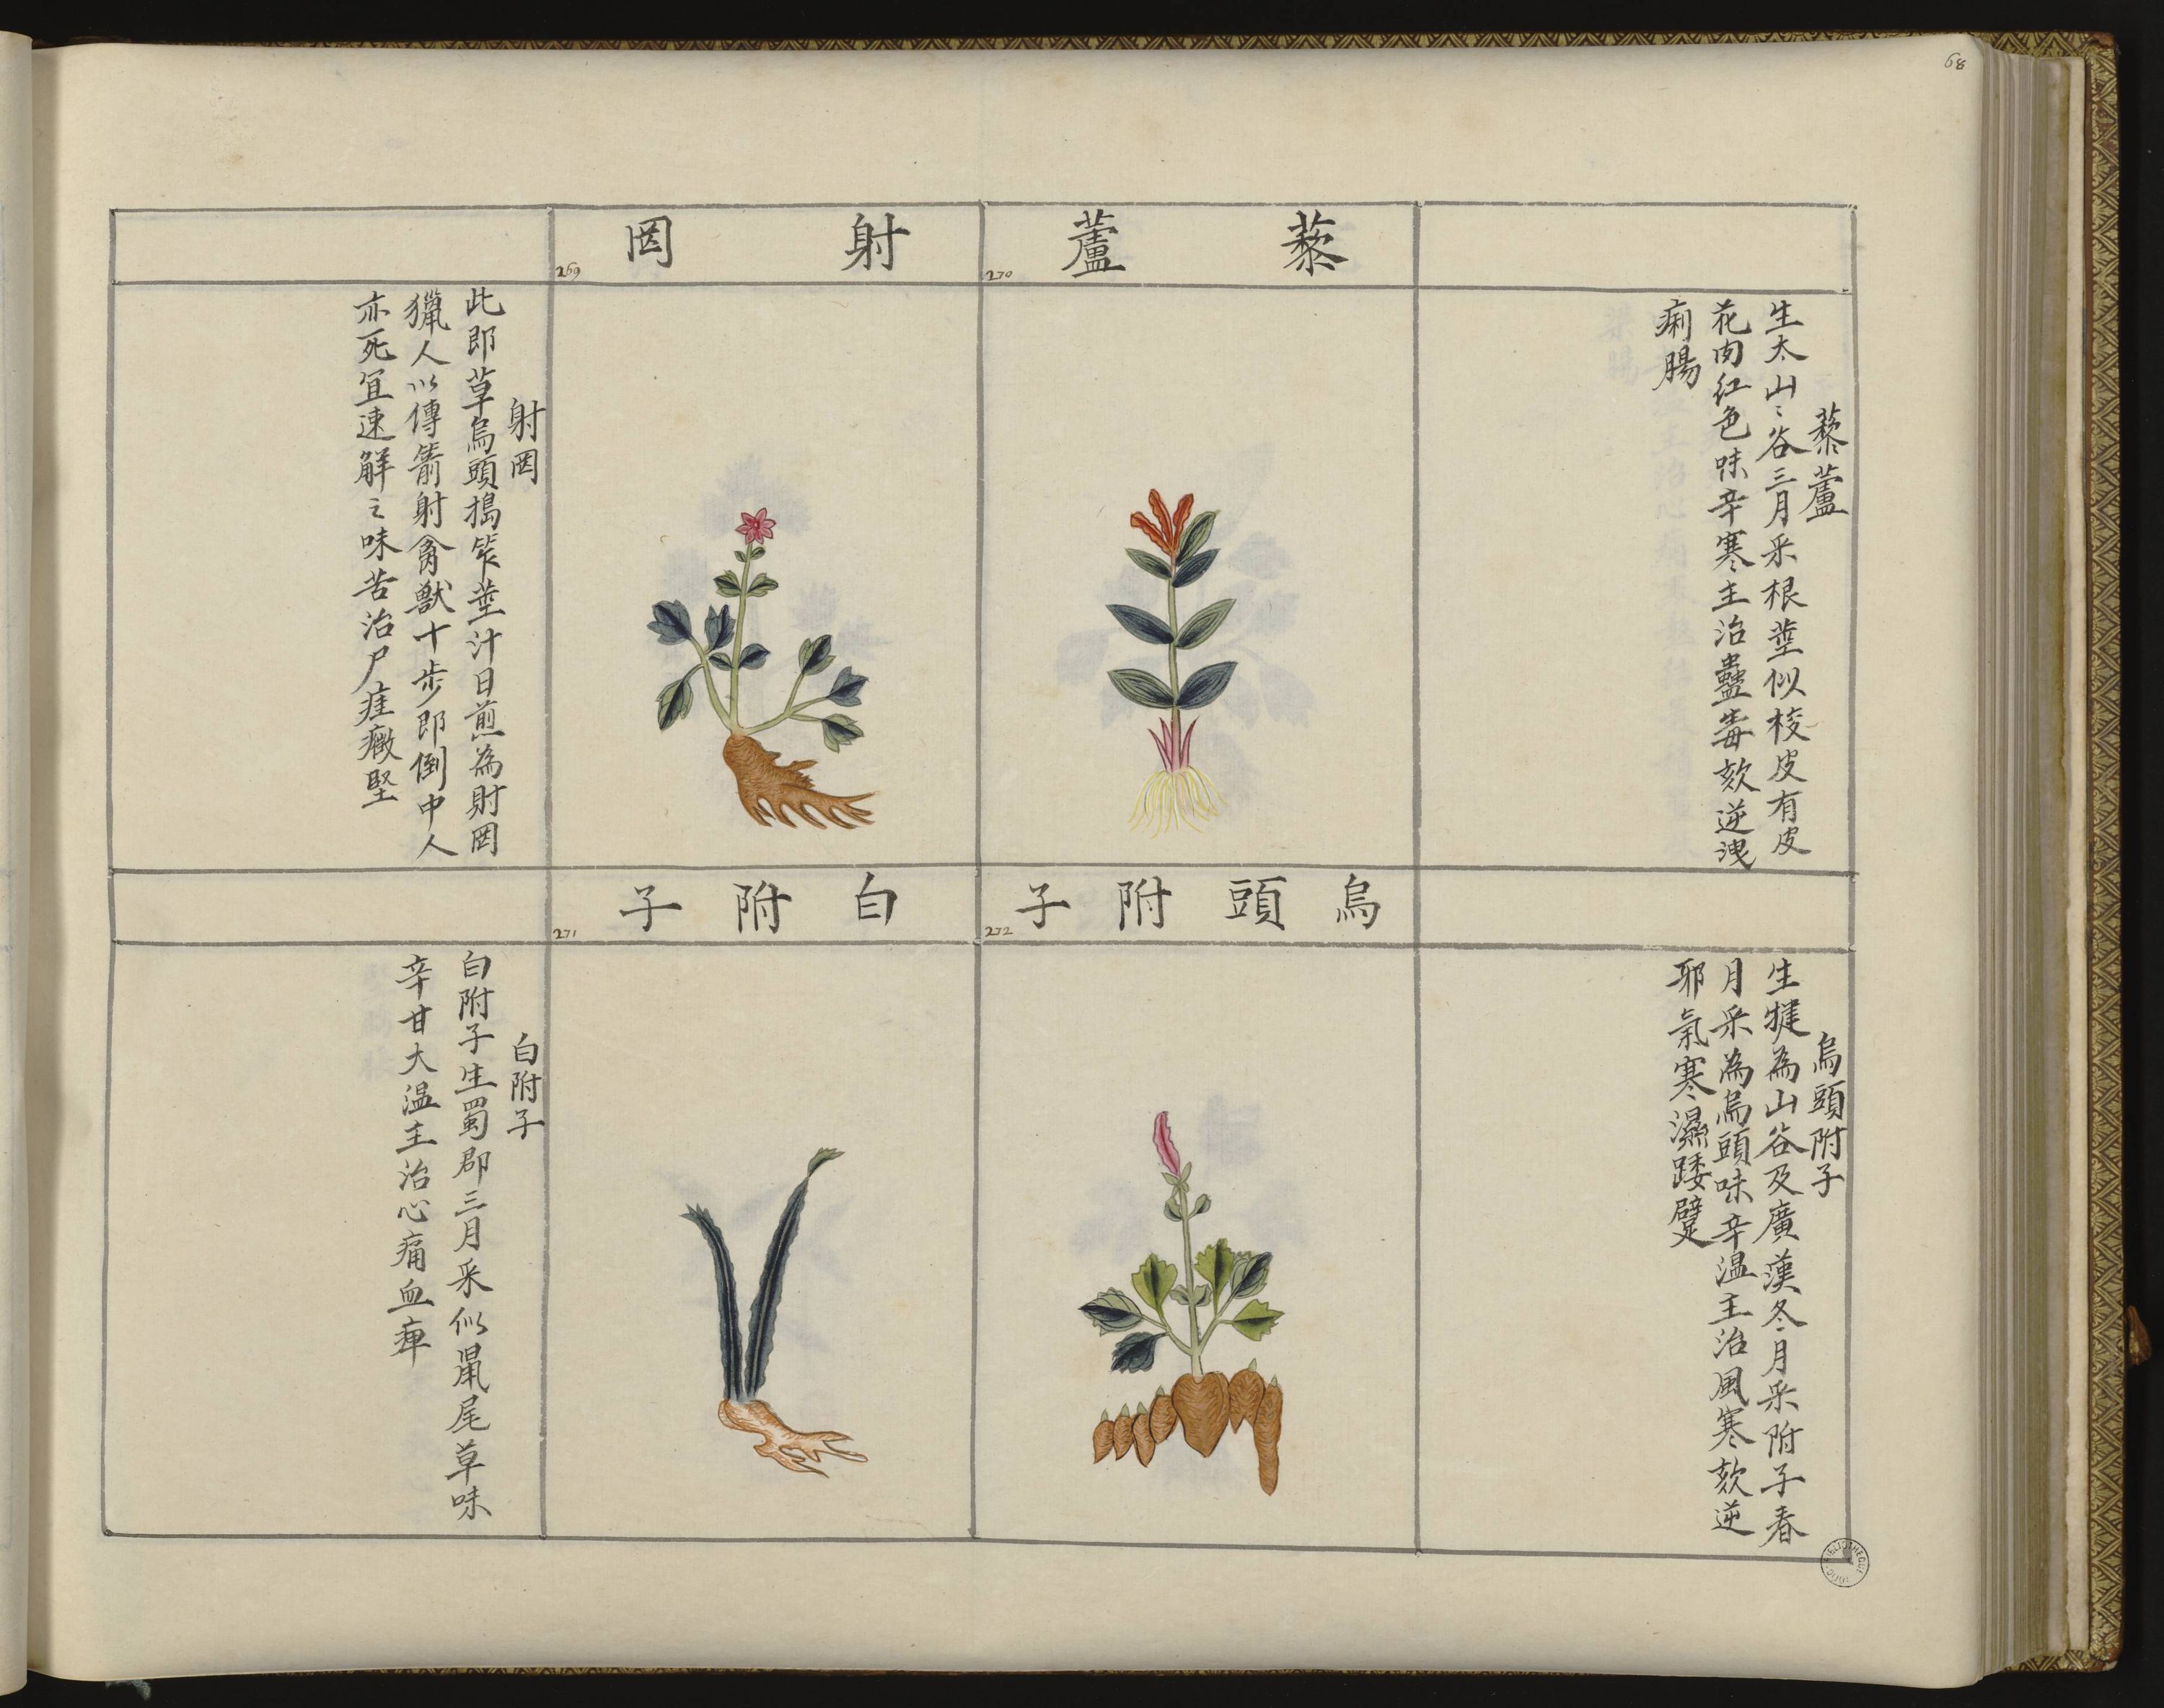 68
藜蘆
270
藜蘆
生太山〻谷三月采根莖似椶皮有皮
花肉紅色味辛寒主治蠱毒欬逆洩
痢腸
射罔
269
射罔
此即草烏頭搗笮莖汁日煎為射罔
獵人以傅箭射禽獸十步即倒中人
亦死宜速解之味苦治尸疰癥堅
烏頭附子
272
烏頭附子
生犍為山谷及廣漢冬月采附子春
月采為烏頭味辛温主治風寒欬逆
耶氣寒濕踒躄
白附子
271
白附子
白附子生蜀郡三月采似鼠尾草味
辛甘大温主治心痛血痺